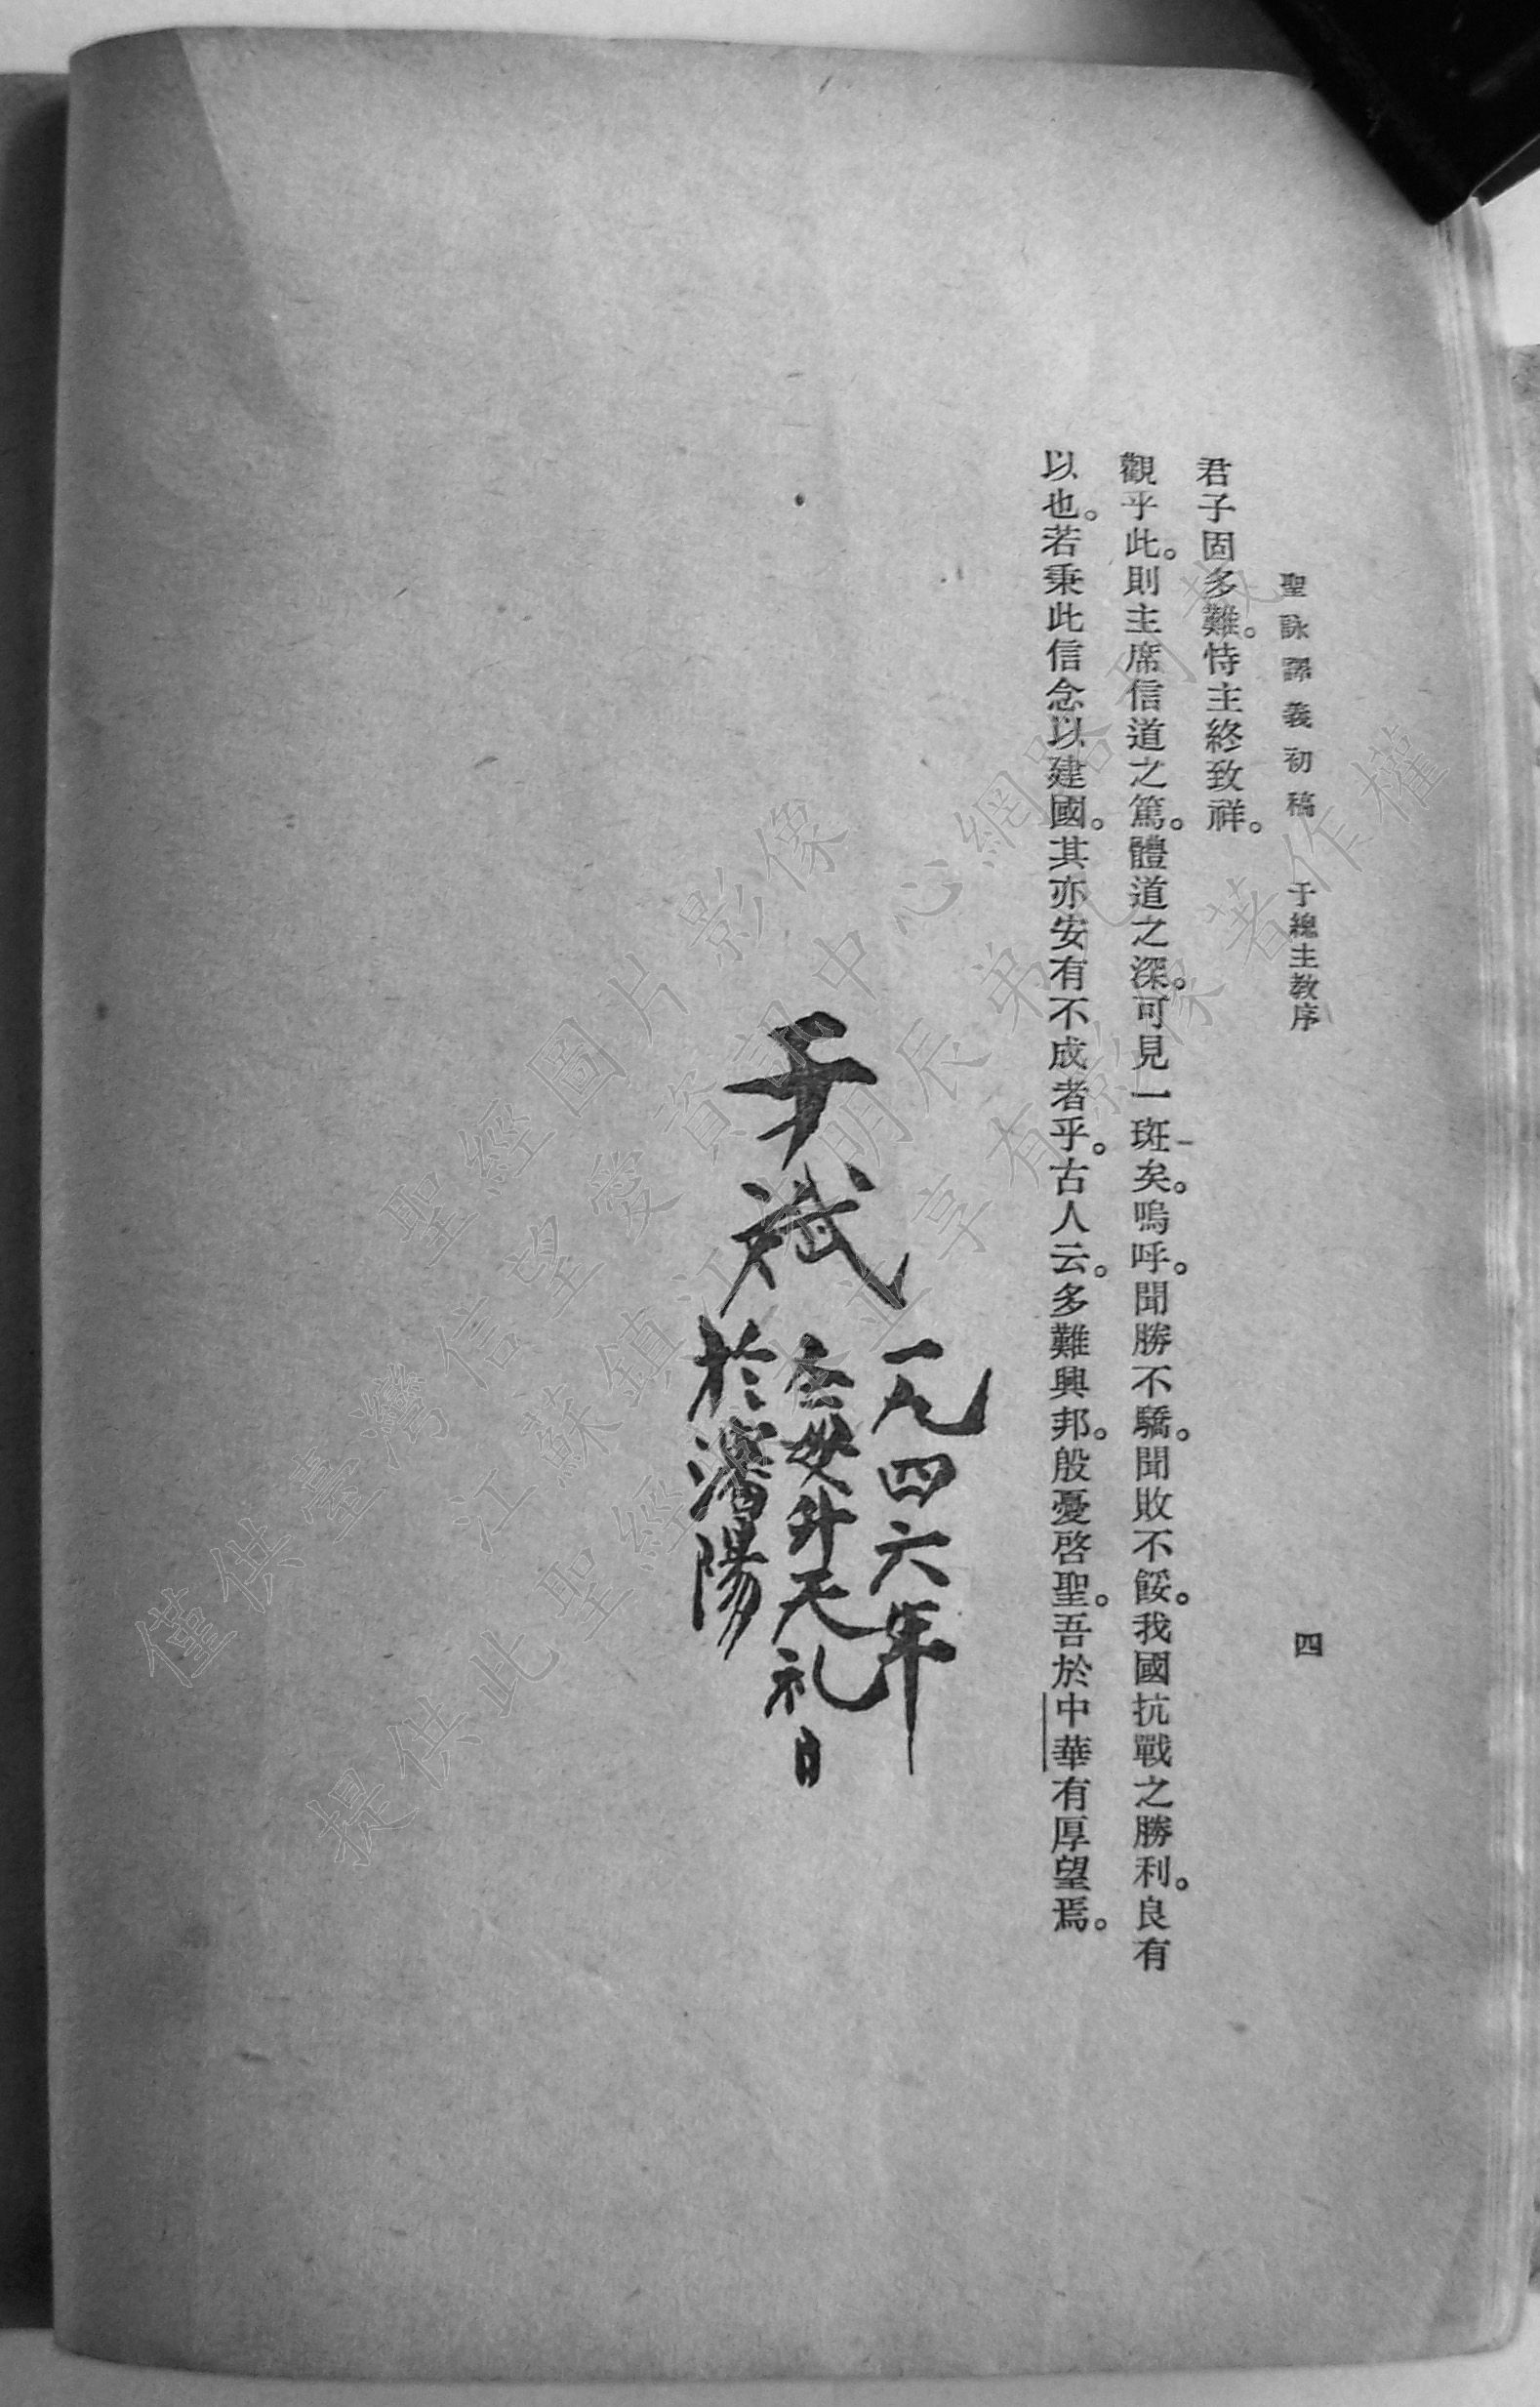 聖詠譯義初稿 于總主教序 四
君子固多難。恃主終致祥。
觀乎此。則主席信道之篤。體道之深。可見一斑矣。嗚呼。聞勝不驕。聞敗不餒。我國抗戰之勝利。良有
以也。若秉此信念以建國。其亦安有不成者乎。古人云。多難興邦。殷憂啓聖。吾於中華有厚望焉。
一九四六年
圣母升天礼日
於瀋陽
于斌
聖經圖片影像
僅供臺灣信望愛資訊中心網路刊載
江蘇鎮江 明辰弟兄
提供此聖經 並享有影像著作權